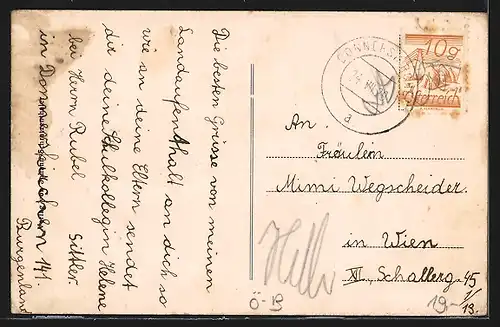 Die besten Grüsse von meinen
Landaufenthalt an dich so
wie an deine Eltern sendet
dir deine Schulkollegin Helene
Sittler.
bei Herrn Rubel
in Don 141.
Burgenland
10g
Österreich
DONNERS
a
An
Fräulein
Mimi Wegscheider.
in Wien
XII. Schallerg. 45
1/13.
Ö-B
19.-